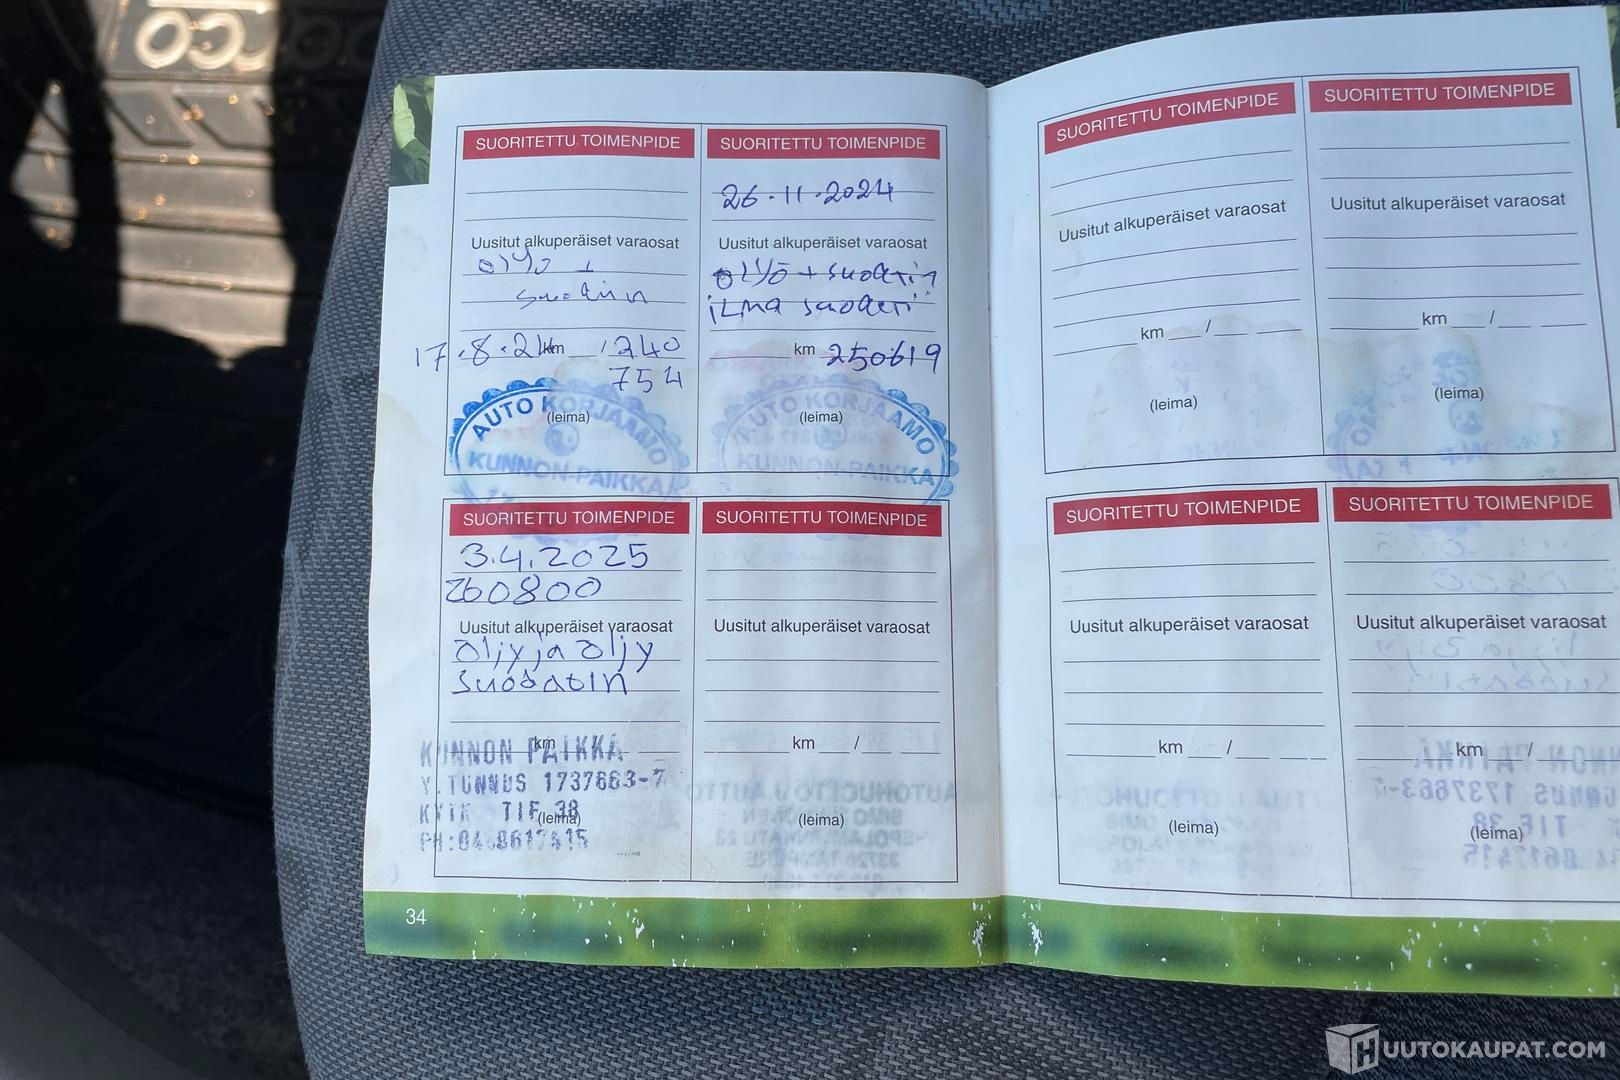 SUORITETTU TOIMENPIDE
Uusitut alkuperäiset varaosat
öljy +
suodatin
17.8.24 km / 240
754
(leima)
AUTO KORJAAMO
KUNNON-PAIKKA
SUORITETTU TOIMENPIDE
26.11.2024
Uusitut alkuperäiset varaosat
öljy + suodatin
ilma suodatin
km 250619
(leima)
AUTO KORJAAMO
KUNNON-PAIKKA
SUORITETTU TOIMENPIDE
3.4.2025
260800
Uusitut alkuperäiset varaosat
öljy ja öljy
suodatin
km
KUNNON PAIKKA
Y.TUNNUS 1737663-7
TIE 38
(leima)
SUORITETTU TOIMENPIDE
Uusitut alkuperäiset varaosat
km /
(leima)
34
SUORITETTU TOIMENPIDE
Uusitut alkuperäiset varaosat
km /
(leima)
SUORITETTU TOIMENPIDE
Uusitut alkuperäiset varaosat
km /
(leima)
SUORITETTU TOIMENPIDE
Uusitut alkuperäiset varaosat
km /
(leima)
SUORITETTU TOIMENPIDE
Uusitut alkuperäiset varaosat
km /
(leima)
HUUTOKAUPAT.COM